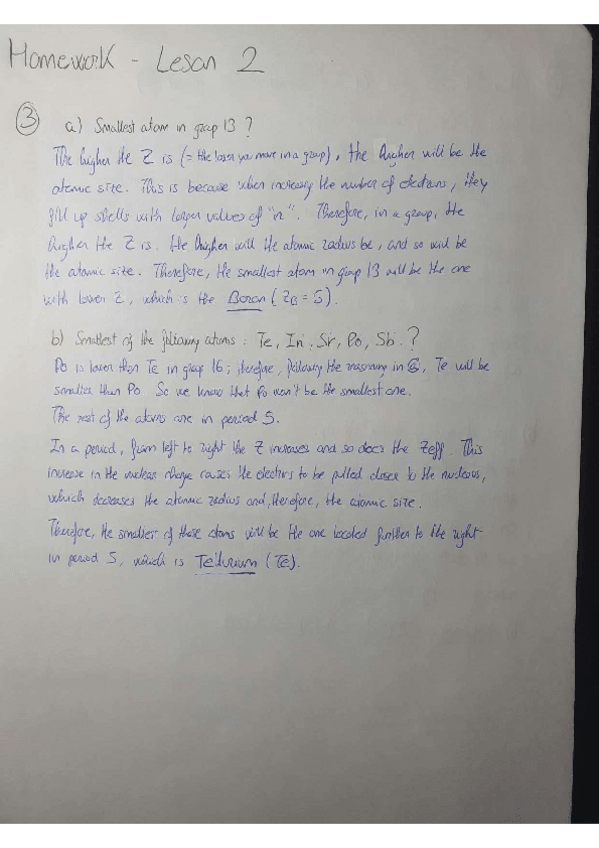 Homework - Leson 2
③ a) Smallest atom in group 13 ?
The higher the Z is (= the lower you move in a group), the higher will be the
atomic size. This is because when increasing the number of electrons, they
fill up shells with larger values of "n". Therefore, in a group, the
higher the Z is, the higher will the atomic radius be, and so will be
the atomic size. Therefore, the smallest atom in group 13 will be the one
with lower Z, which is the Boron (ZB = 5).
b) Smallest of the following atoms: Te, In, Sr, Po, Sb.?
Po is lower than Te in group 16; therefore, following the reasoning in @, Te will be
smaller than Po. So we know that Po won't be the smallest one.
The rest of the atoms are in period 5.
In a period, from left to right the Z increases and so does the Zeff. This
increase in the nuclear charge causes the electrons to be pulled closer to the nucleus,
which decreases the atomic radius and, therefore, the atomic size.
Therefore, the smallest of these atoms will be the one located further to the right
in period 5, which is Tellurium (Te).